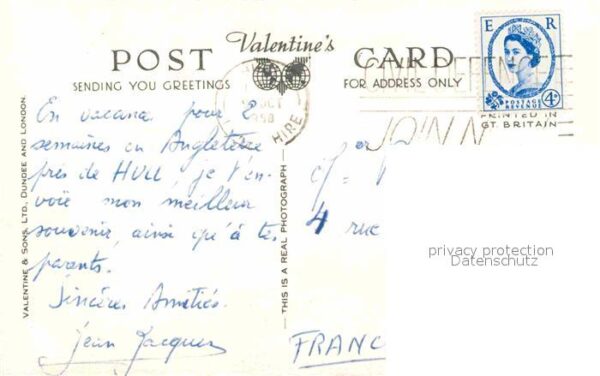 POST Valentine's CARD
SENDING YOU GREETINGS FOR ADDRESS ONLY
E R
4D
POSTAGE
REVENUE
PRINTED IN
GT. BRITAIN
OCT
1958
HIRE
JOIN N
En vacance pour 2
semaines en Angleterre
près de HULL, je t'en-
voie mon meilleur
souvenir, ainsi qu'à tes
parents.
Sincères Amitiés.
Jean Jacques
4 rue
FRANC
VALENTINE & SONS, LTD., DUNDEE AND LONDON.
THIS IS A REAL PHOTOGRAPH
privacy protection
Datenschutz